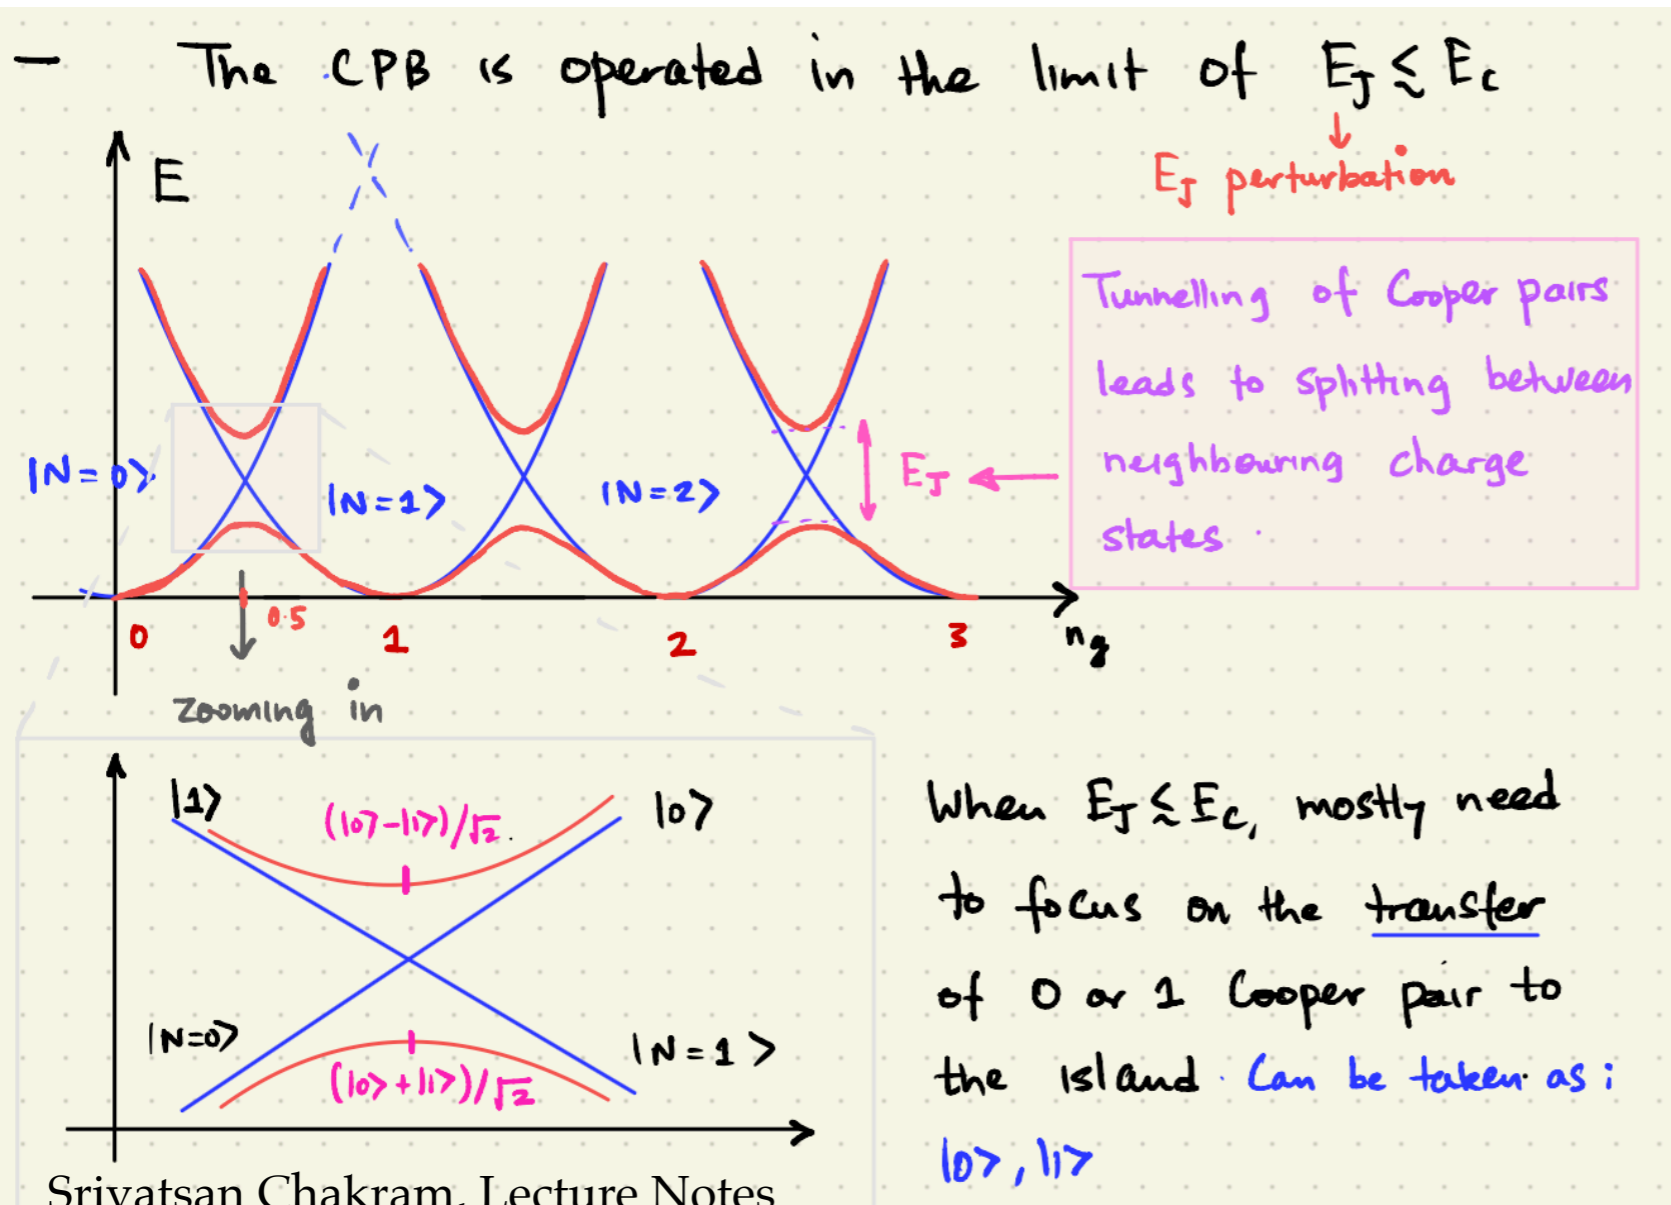 – The CPB is operated in the limit of E_J ≲ E_C
E_J perturbation
E
Tunnelling of Cooper pairs
leads to splitting between
neighbouring charge
states.
|N=0>
|N=1>
|N=2>
E_J
0
0.5
1
2
3
n_g
zooming in
|1>
(|0>-|1>)/√2.
|0>
|N=0>
(|0>+|1>)/√2
|N=1>
When E_J ≲ E_C, mostly need
to focus on the transfer
of 0 or 1 Cooper pair to
the island. Can be taken as:
|0>, |1>
Srivatsan Chakram, Lecture Notes